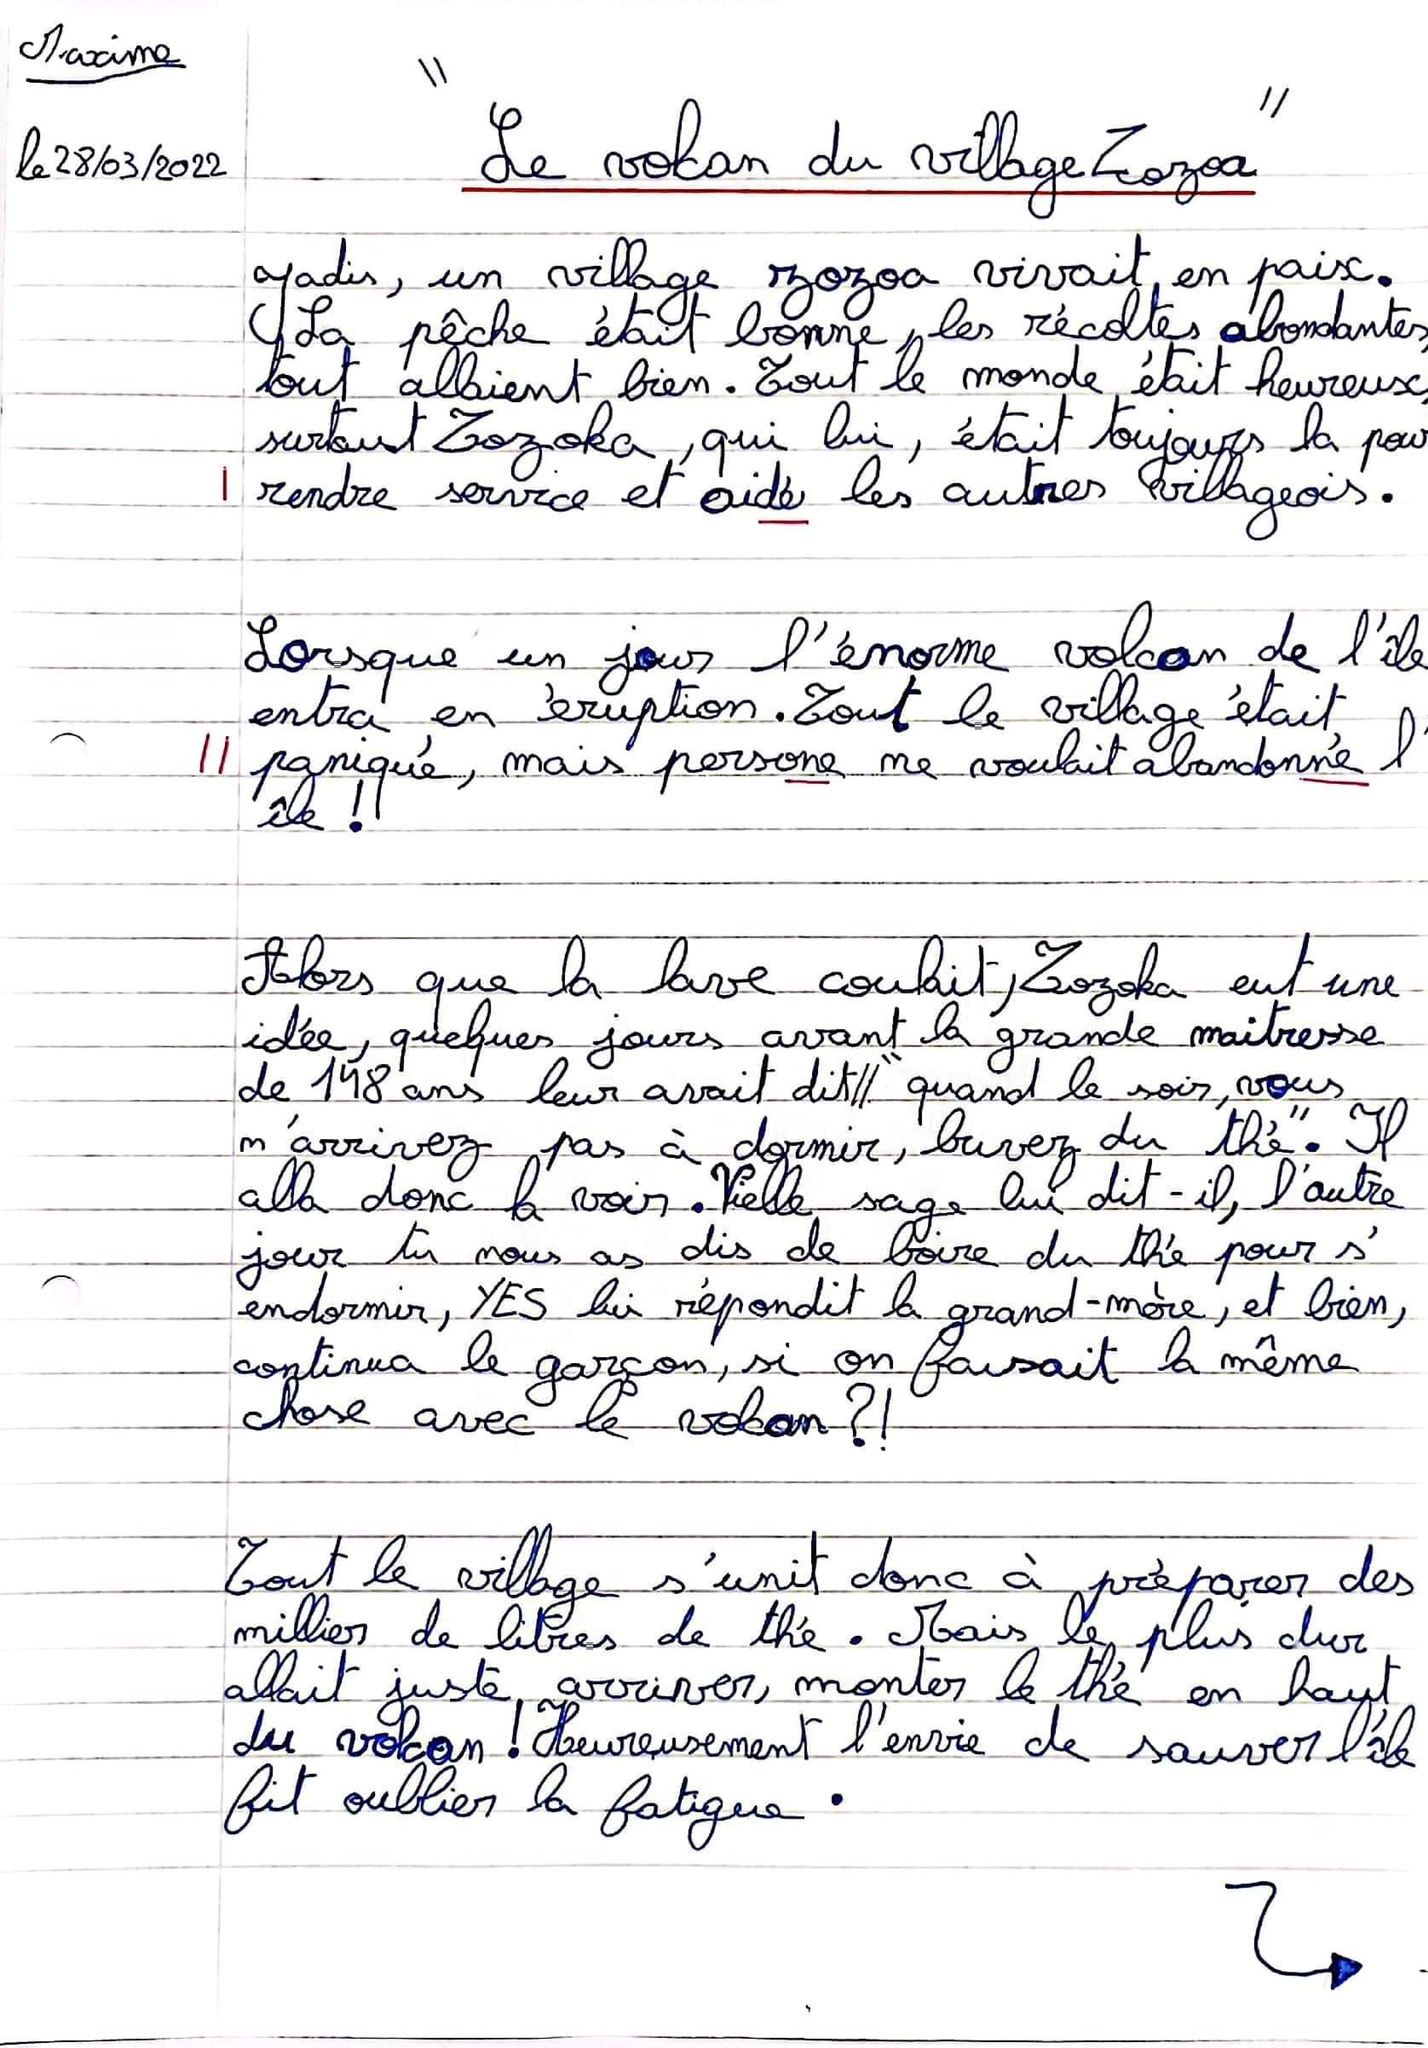 Maxime
le 28/03/2022
" Le volcan du village Zozoa "
Jadis, un village zozoa vivait en paix.
La pêche était bonne, les récoltes abondantes,
tout allaient bien. Tout le monde était heureux,
surtout Zozoka, qui lui, était toujours la pour
rendre service et aidé les autres villageois.
Lorsque un jour l'énorme volcan de l'île
entra en éruption. Tout le village était
paniqué, mais persone ne voulait abandonné l'
île !
Alors que la lave coulait, Zozoka eut une
idée, quelques jours avant la grande maitresse
de 148 ans leur avait dit "quand le soir, vous
n'arrivez pas à dormir, buvez du thé". Il
alla donc la voir. Vielle sage lui dit-il, l'autre
jour tu nous as dis de boire du thé pour s'
endormir, YES lui répondit la grand-mère, et bien,
continua le garçon, si on faisait la même
chose avec le volcan ?!
Tout le village s'unit donc à préparer des
millier de litres de thé. Mais le plus dur
allait juste arriver, monter le thé en haut
du volcan ! Heureusement l'envie de sauver l'île
fit oublier la fatigue.